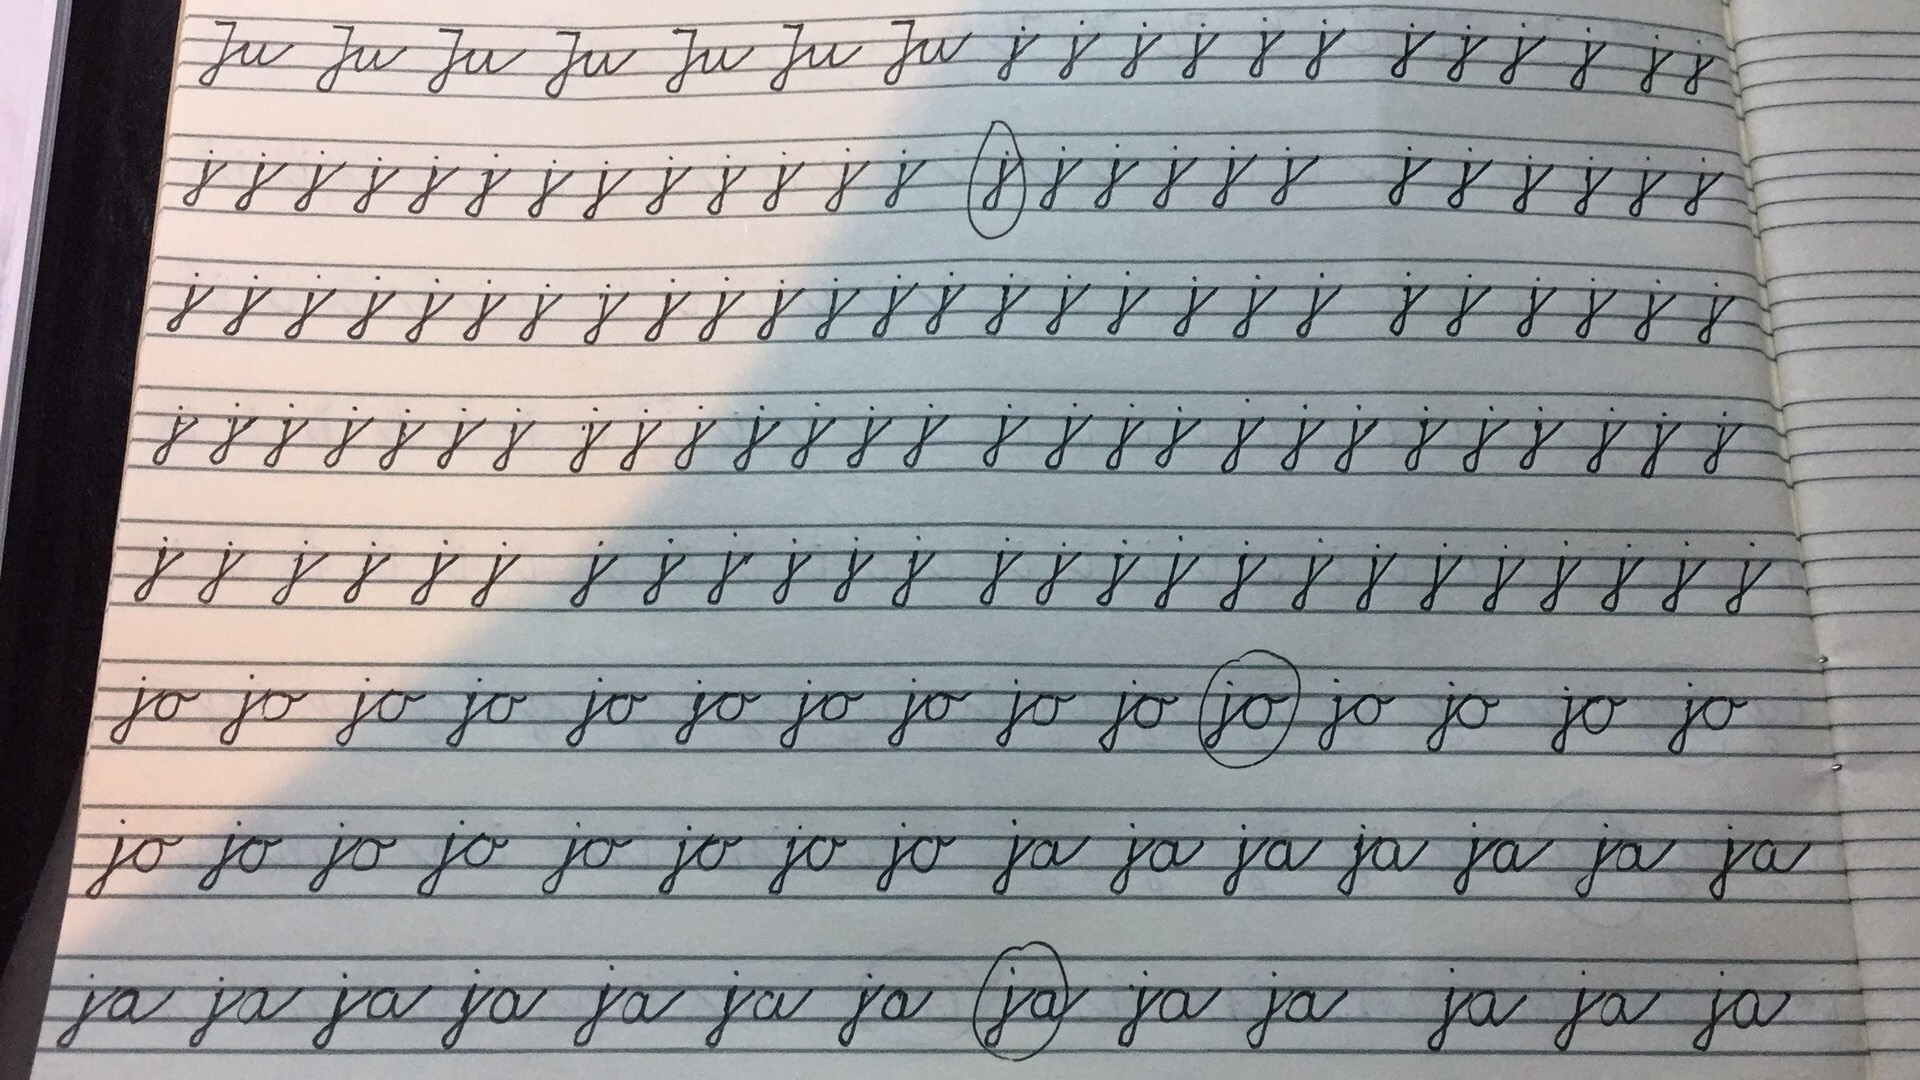 Ju Ju Ju Ju Ju Ju Ju j j j j j j j j j j j j
j j j j j j j j j j j j j j j j j j j j j j j j j
j j j j j j j j j j j j j j j j j j j j j j j j j j
j j j j j j j j j j j j j j j j j j j j j j j j j j j
j j j j j j j j j j j j j j j j j j j j j j j j j
jo jo jo jo jo jo jo jo jo jo jo jo jo jo jo
jo jo jo jo jo jo jo jo ja ja ja ja ja ja ja
ja ja ja ja ja ja ja ja ja ja ja ja ja